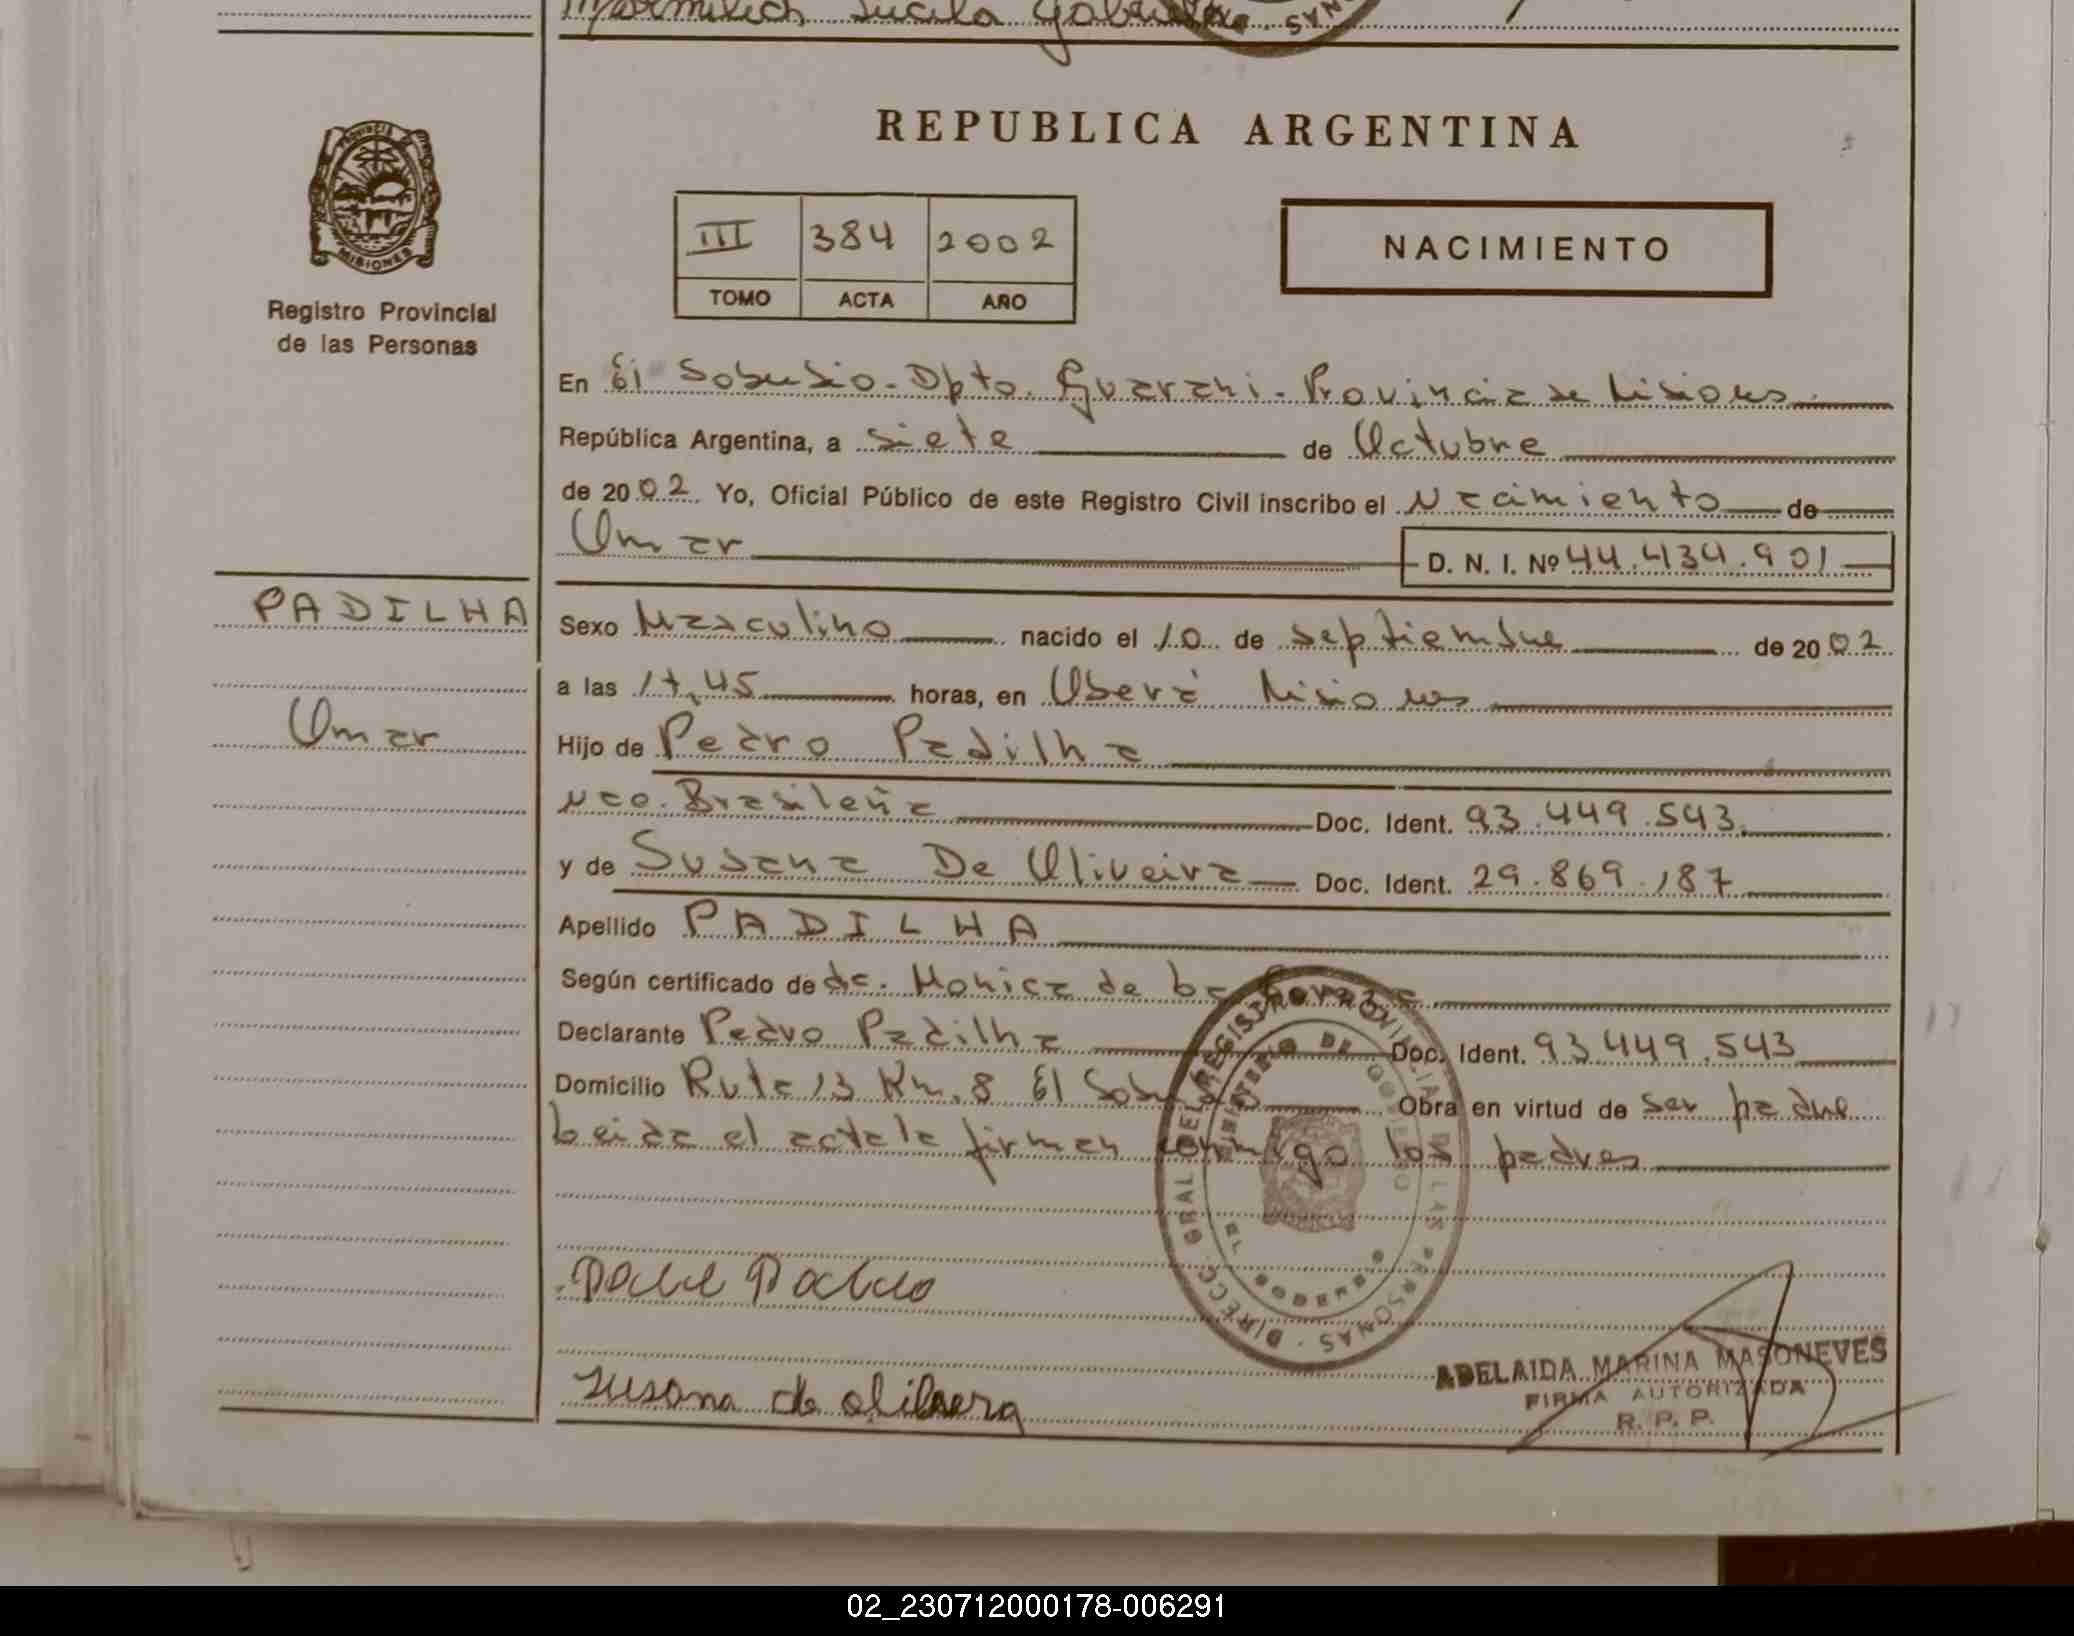 REPUBLICA ARGENTINA
PROVINCIA DE MISIONES
Registro Provincial
de las Personas
III 384 2002
TOMO ACTA AÑO
NACIMIENTO
En El Soberbio - Dpto. Guarani - Provincia de Misiones
República Argentina, a siete de Octubre
de 2002 Yo, Oficial Público de este Registro Civil inscribo el Nacimiento de
Omar D. N. I. Nº 44.434.901
PADILHA
Omar
Sexo Masculino nacido el 10 de septiembre de 2002
a las 17,45 horas, en Oberá Misiones
Hijo de Pedro Padilha
nac. Brasileña Doc. Ident. 93.449.543
y de Susana De Oliveira Doc. Ident. 29.869.187
Apellido PADILHA
Según certificado de dra. Monica de
Declarante Pedro Padilha Doc. Ident. 93.449.543
Domicilio Ruta 13 Km. 8 El Soberbio Obra en virtud de ser padre
Leida el acta la firman conmigo los padres
DIRECC. GRAL. DEL REGISTRO PROVINCIAL DE LAS PERSONAS
MINISTERIO DE GOBIERNO
EL SOBERBIO
Susana de
ADELAIDA MARINA MASONEVES
FIRMA AUTORIZADA
R. P. P.
02_230712000178-006291